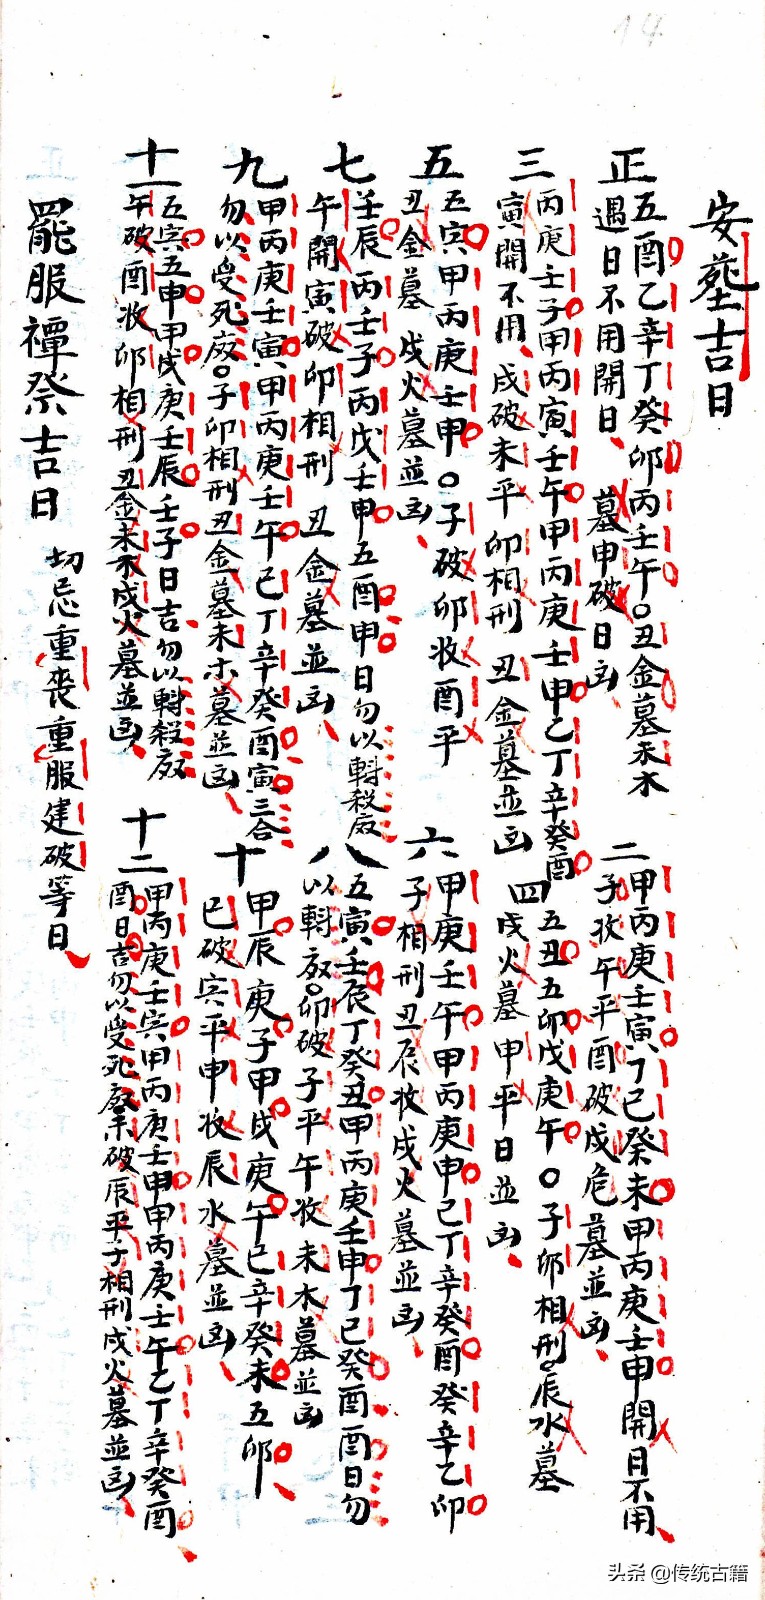 14
安葬吉日
正
五酉乙辛丁癸卯丙壬午〇丑金墓未木
遇日不用開日、墓申破日凶、
二
甲丙庚壬寅、丁巳癸未甲丙庚壬申開日不用、
子收午平酉破戌危墓並凶、
三
丙庚壬子甲丙寅壬午甲丙庚壬申乙丁辛癸酉
寅開不用、戌破未平卯相刑丑金墓並凶
四
五丑五卯戊庚午〇子卯相刑辰水墓
戌火墓申平日並凶、
五
五寅甲丙庚壬申〇子破卯收酉平
丑金墓戌火墓並凶、
六
甲庚壬午甲丙庚申己丁辛癸酉癸辛乙卯
子相刑丑辰收戌火墓並凶、
七
壬辰丙壬子丙戊壬申五酉申日勿以轉殺啟
午開寅破卯相刑丑金墓並凶、
八
五寅壬辰丁癸丑甲丙庚壬申丁己癸酉酉日勿
以轉啟〇卯破子平午收未木墓並凶
九
甲丙庚壬寅、甲丙庚壬午己丁辛癸酉寅三合
勿以受死啟〇子卯相刑丑金墓未木墓並凶、
十
甲辰庚子甲戌庚午己辛癸未五卯、
巳破寅平申收辰水墓並凶、
十一
五寅五申甲戌庚壬辰壬子日吉、勿以轉殺啟
午破酉收卯相刑丑金未木戌火墓並凶、
十二
甲丙庚壬寅甲丙庚壬申甲丙庚壬午乙丁辛癸酉、
酉日吉勿以受死啟未破辰平子相刑戌火墓並凶、
罷服禫祭吉日
切忌重喪重服建破等日、
头条 @传统古籍